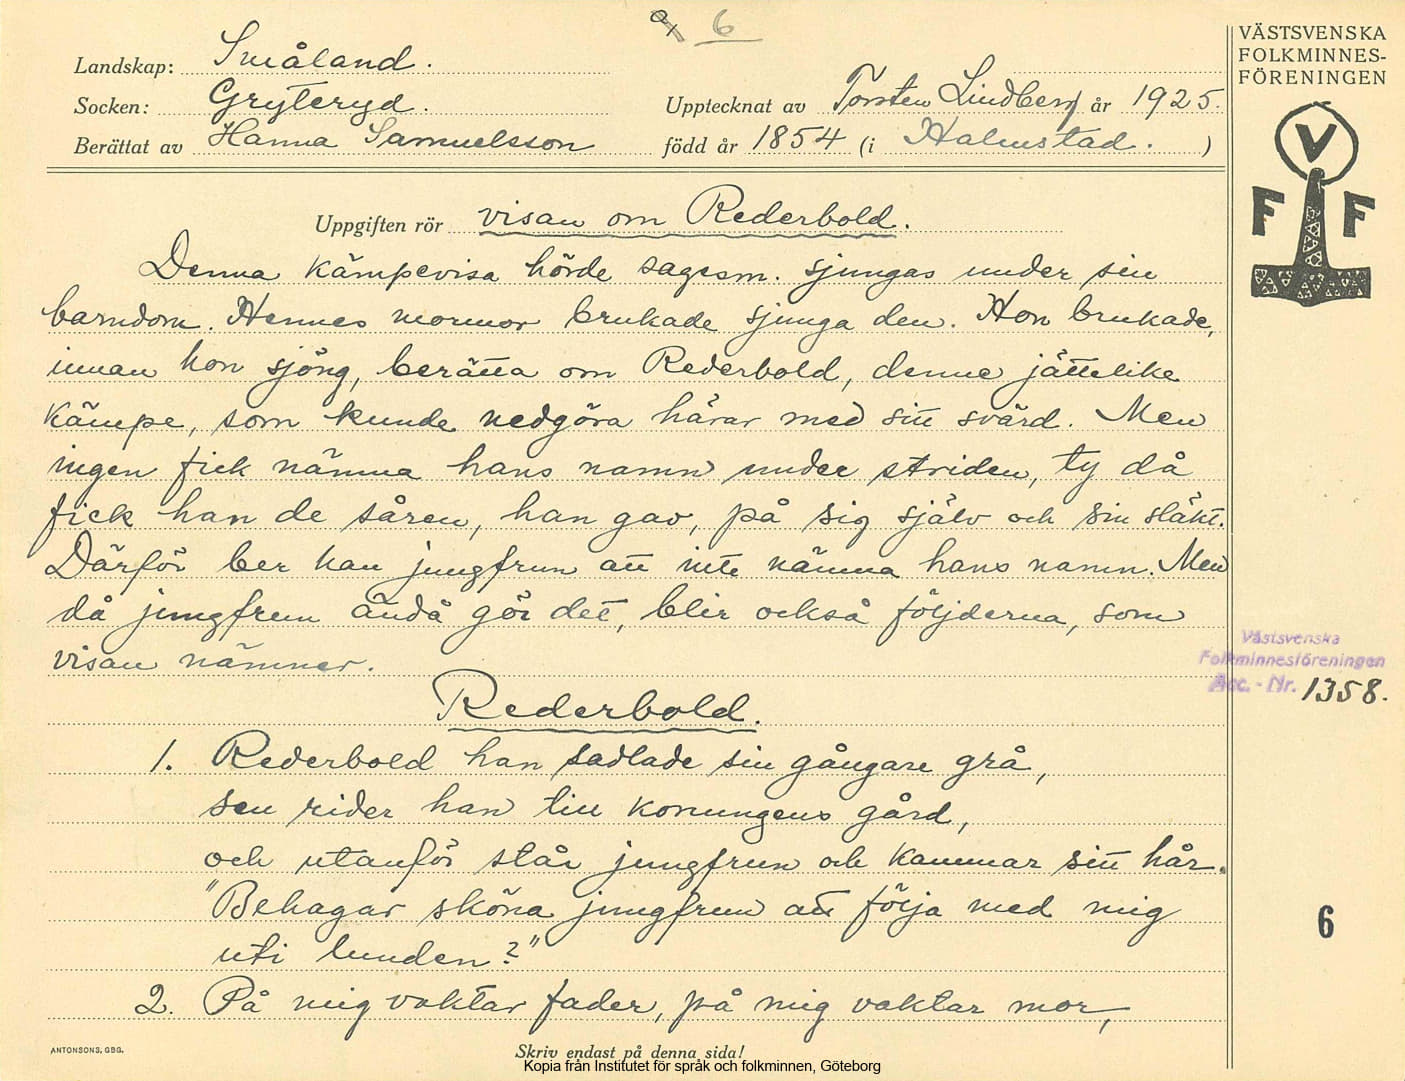 6
VÄSTSVENSKA
FOLKMINNES-
FÖRENINGEN
Landskap: Småland.
Socken: Gryteryd.
Upptecknat av Torsten Lindberg år 1925.
Berättat av Hanna Samuelsson född år 1854 (i Halmstad.)
V
F F
Uppgiften rör visan om Rederbold.
Denna kämpevisa hörde sagesm. sjungas under sin
barndom. Hennes mormor brukade sjunga den. Hon brukade,
innan hon sjöng, berätta om Rederbold, denne jättelike
kämpe, som kunde nedgöra härar med sitt svärd. Men
ingen fick nämna hans namn under striden, ty då
fick han de såren, han gav, på sig själv och sin släkt.
Därför ber han jungfrun att inte nämna hans namn. Men
då jungfrun ändå gör det, blir också följderna, som
visan nämner.
Västsvenska
Folkminnesföreningen
Acc. - Nr. 1358.
Rederbold.
1. Rederbold han sadlade sin gångare grå,
sen rider han till konungens gård,
och utanför står jungfrun och kammar sitt hår.
"Behagar sköna jungfrun att följa med mig
uti lunden?"
6
2. På mig vaktar fader, på mig vaktar mor,
ANTONSONS, GBG.
Skriv endast på denna sida!
Kopia från Institutet för språk och folkminnen, Göteborg